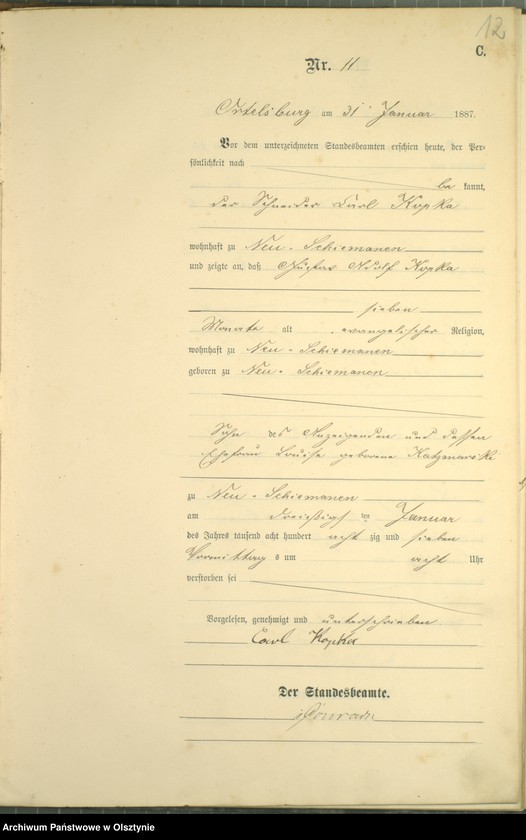 12
C.
Nr. 11
Ortelsburg am 31 Januar 1887.
Vor dem unterzeichneten Standesbeamten erschien heute, der Per-
sönlichkeit nach
be kannt,
der Schneider Carl Kopka
wohnhaft zu Neu-Schiemanen
und zeigte an, daß Gustav Adolf Kopka
sieben
Monate alt evangelischer Religion,
wohnhaft zu Neu-Schiemanen
geboren zu Neu-Schiemanen
Sohn des Anzeigenden und dessen
Ehefrau Louise geborene Katzmarski
zu Neu-Schiemanen
am dreißigsten Januar
des Jahres tausend acht hundert acht zig und sieben
Vormittag s um acht Uhr
verstorben sei
Vorgelesen, genehmigt und unterschrieben
Carl Kopka
Der Standesbeamte.
Conrad
Archiwum Państwowe w Olsztynie